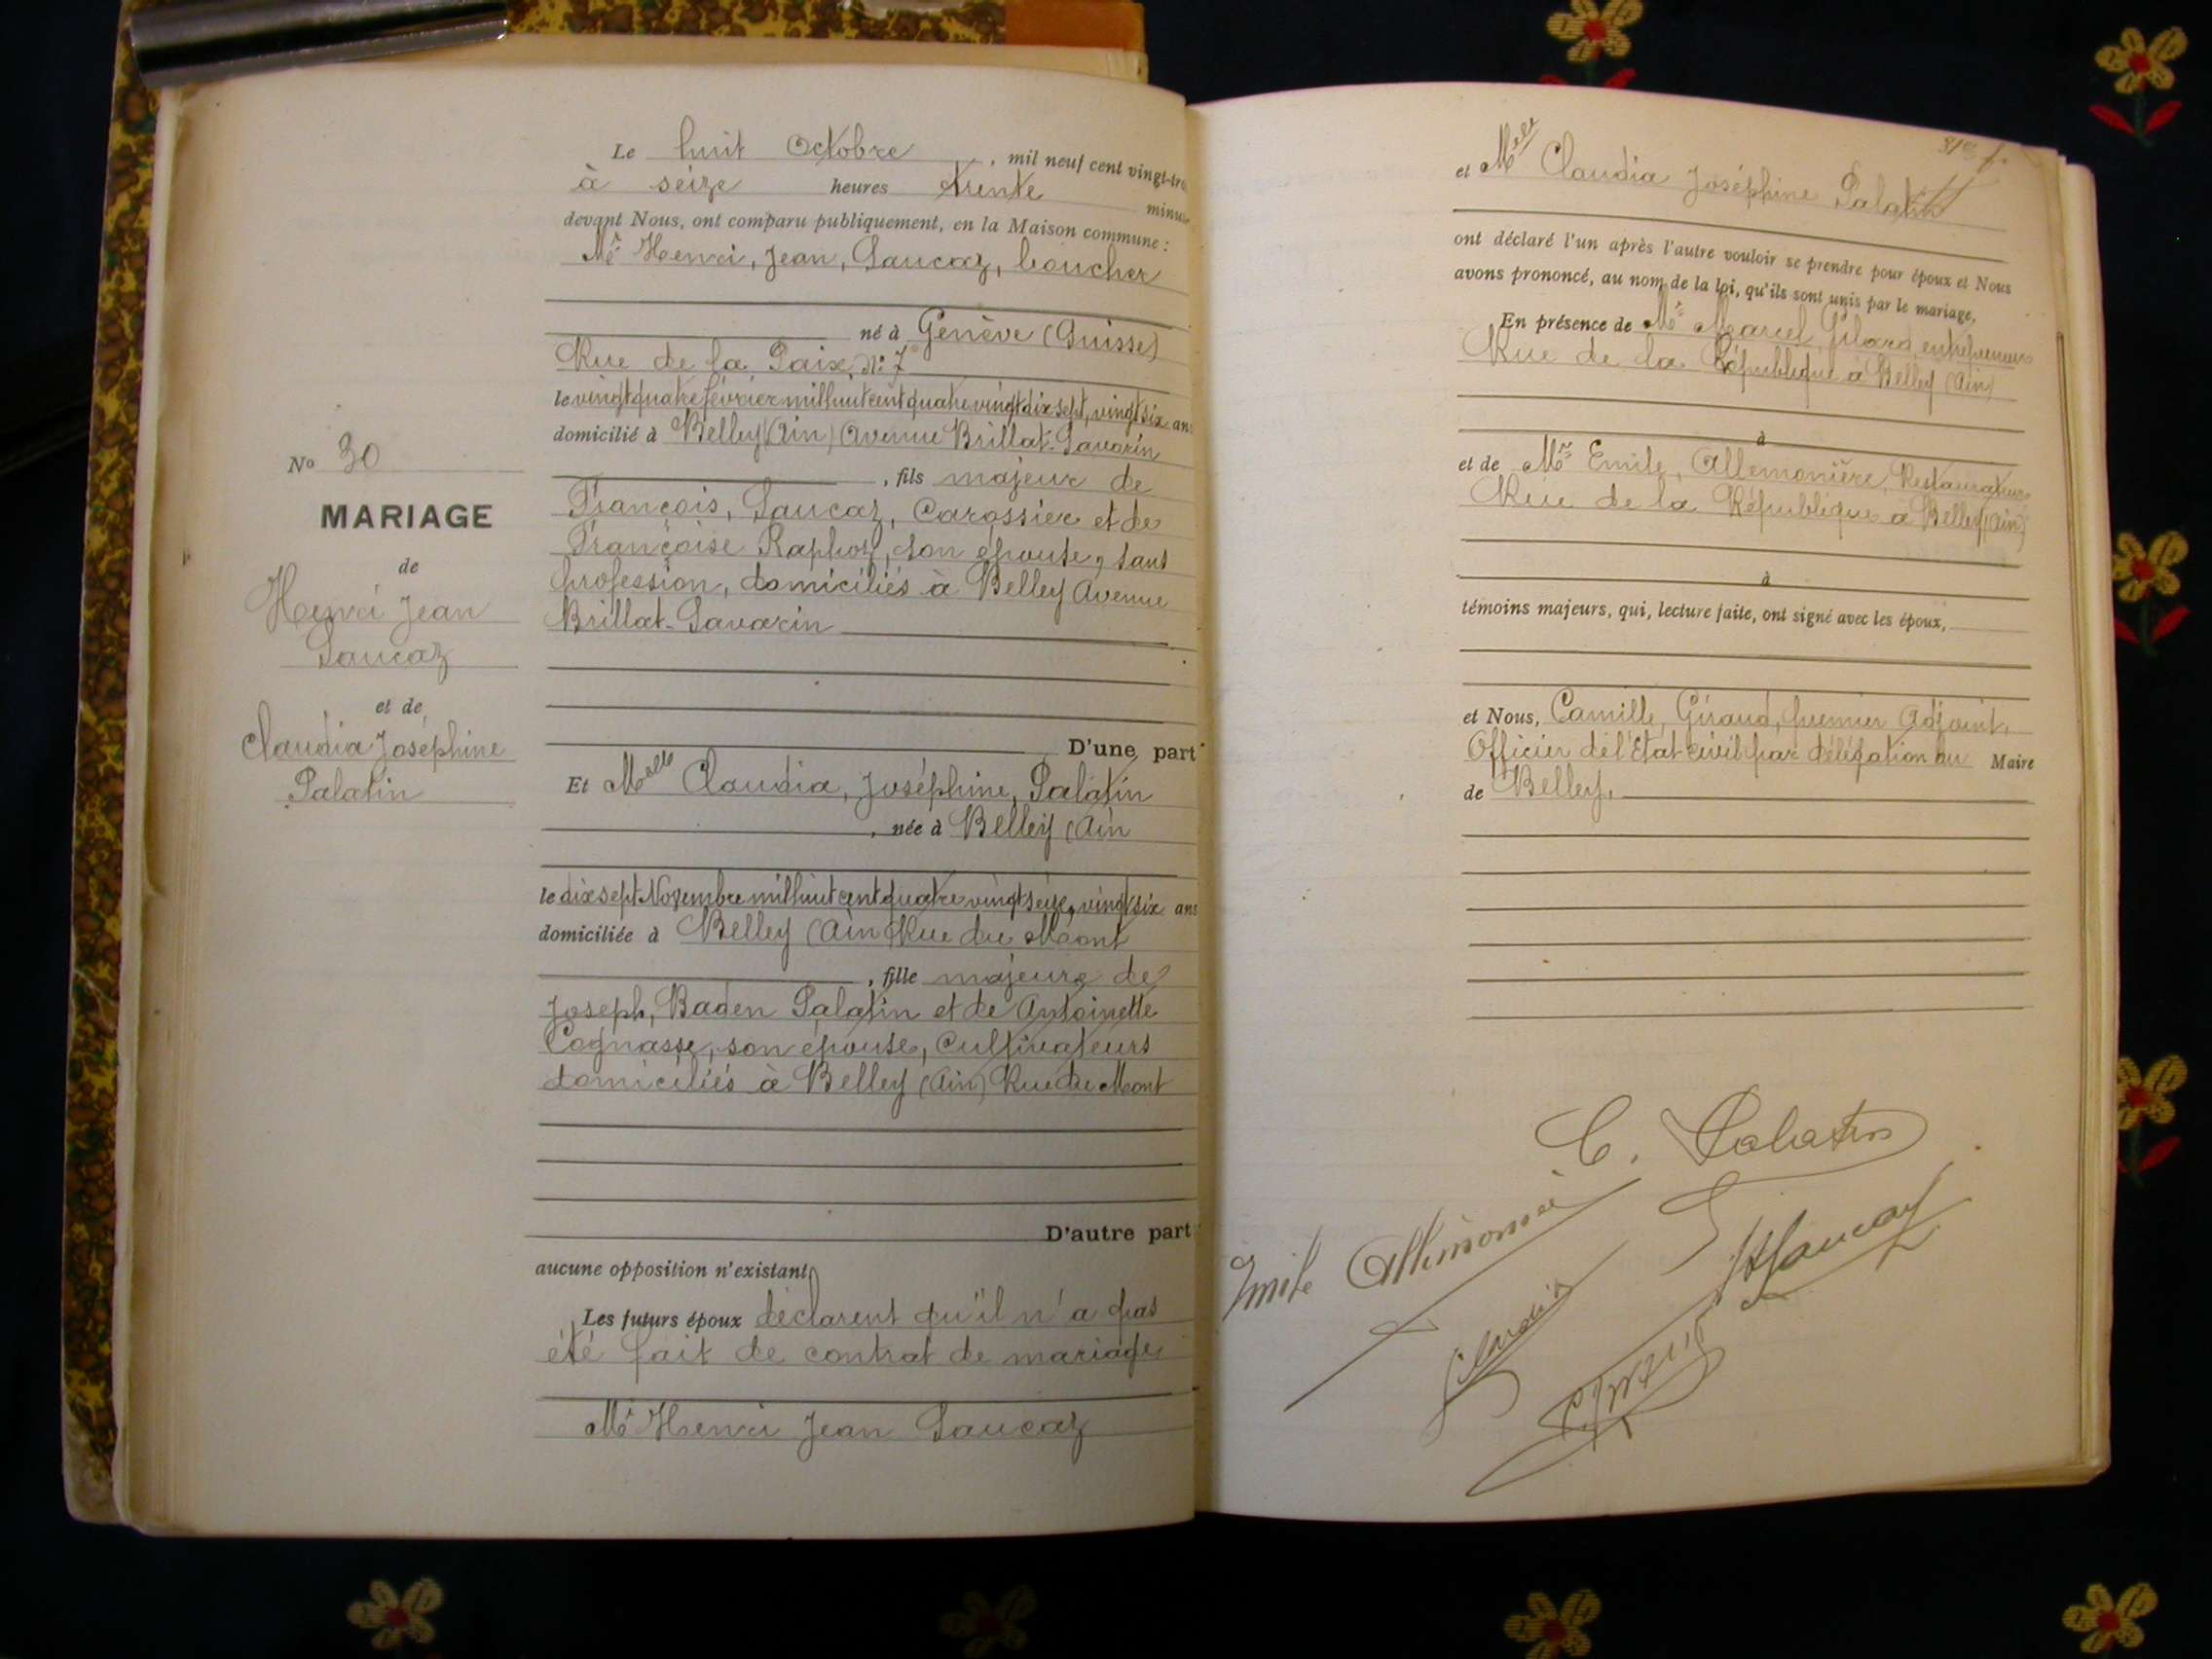 Le huit Octobre, mil neuf cent vingt-tro
à seize heures trente minu
devant Nous, ont comparu publiquement, en la Maison commune :
Mr Henri, Jean, Saucaz, boucher
né à Genève (Suisse)
Rue de la Paix, No 7
le vingt quatre février mil huit cent quatre vingt dix sept, vingt six ans
domicilié à Belley (Ain) Avenue Brillat-Savarin
, fils majeur de
François, Saucaz, Carossier et de
Françoise Raphoz, son épouse, sans
profession, domiciliés à Belley Avenue
Brillat-Savarin
No 30
MARIAGE
de
Henri Jean
Saucaz
et de
Claudia Joséphine
Palatin
D'une part
Et Melle Claudia, Joséphine, Palatin
, née à Belley (Ain
le dix sept Novembre mil huit cent quatre vingt seize, vingt six ans
domiciliée à Belley (Ain Rue du Mont
, fille majeure de
Joseph, Baden Palatin et de Antoinette
Cognasse, son épouse, Cultivateurs
domiciliés à Belley (Ain) Rue du Mont
D'autre part
aucune opposition n'existant
Les futurs époux déclarent qu'il n'a pas
été fait de contrat de mariage
Mr Henri Jean Saucaz
et Melle Claudia Joséphine Palatin
ont déclaré l'un après l'autre vouloir se prendre pour époux et Nous
avons prononcé, au nom de la loi, qu'ils sont unis par le mariage,
En présence de Mr Marcel, entrepreneur
Rue de la République à Belley (Ain)
à
et de Mr Emile, Allemonière, Restaurateur
Rue de la République à Belley (Ain)
à
témoins majeurs, qui, lecture faite, ont signé avec les époux,
et Nous, Camille, Giraud, premier Adjoint,
Officier de l'Etat civil par délégation du Maire
de Belley.
C. Palatin
Emile
HSaucaz